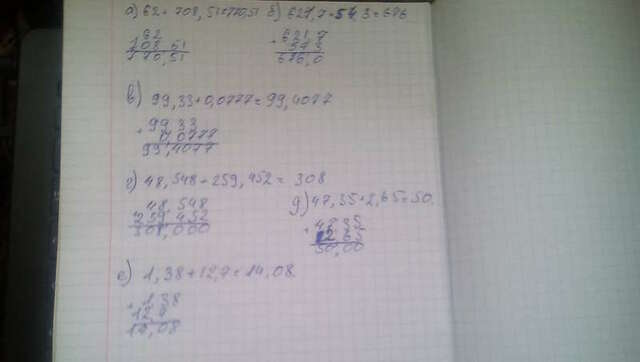 а) 62+708,51=770,51 б) 621,7+54,3=676
62
708,51
770,51
+ 621,7
54,3
676,0
в) 99,33+0,0777=99,4077
+ 99,33
0,0777
99,4077
г) 48,548+259,452= 308
48,548
259,452
308,000
д) 47,35+2,65=50.
+ 47,35
2,65
50,00
е) 1,38+12,7=14,08
+ 1,38
12,7
14,08